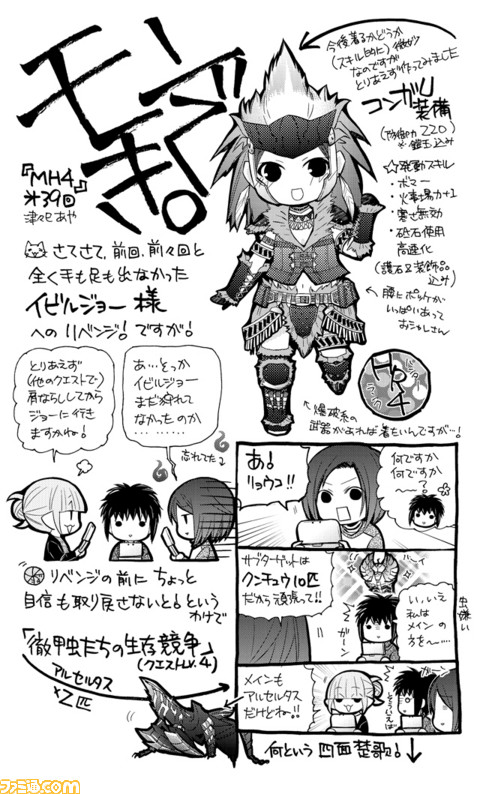 モンジき。
『MH4』
※39回
津々巳あや
今後着るかどうか
(スキル的に)微妙
なのですが
とりあえず作ってみました
コンガU装備
(防御力220)
※鎧玉込み
☆発動スキル
・ボマー
・火事場力+1
・寒さ無効
・砥石使用
高速化
(護石&装飾品
込み)
腰にポッケが
いっぱいあって
おシャレさん
HR4
ハンター
ランク
爆破系の
武器があれば着たいんですが…!
さてさて、前回、前々回と
全く手も足も出なかった
イビルジョー様
へのリベンジ!ですが!
とりあえず
(他のクエストで)
肩ならししてから
ジョーに行き
ますかね!
あ…そっか
イビルジョー
まだ狩れて
なかったのか
………
忘れてた
あ!
リョウコ!!
何ですか
何ですか
〜?
サブターゲットは
クンチュウ10匹
だから頑張って!!
ガーン
い、いえ
私は
メインの
方を〜…
虫嫌い
メインも
アルセルタス
だけどねー!!
ガーン
といえば
リベンジの前にちょっと
自信も取り戻さないと!という
わけで
「徹甲虫たちの生存競争」
(クエストLv.4)
アルセルタス
×2匹
何という四面楚歌!↓
ファミ通.com